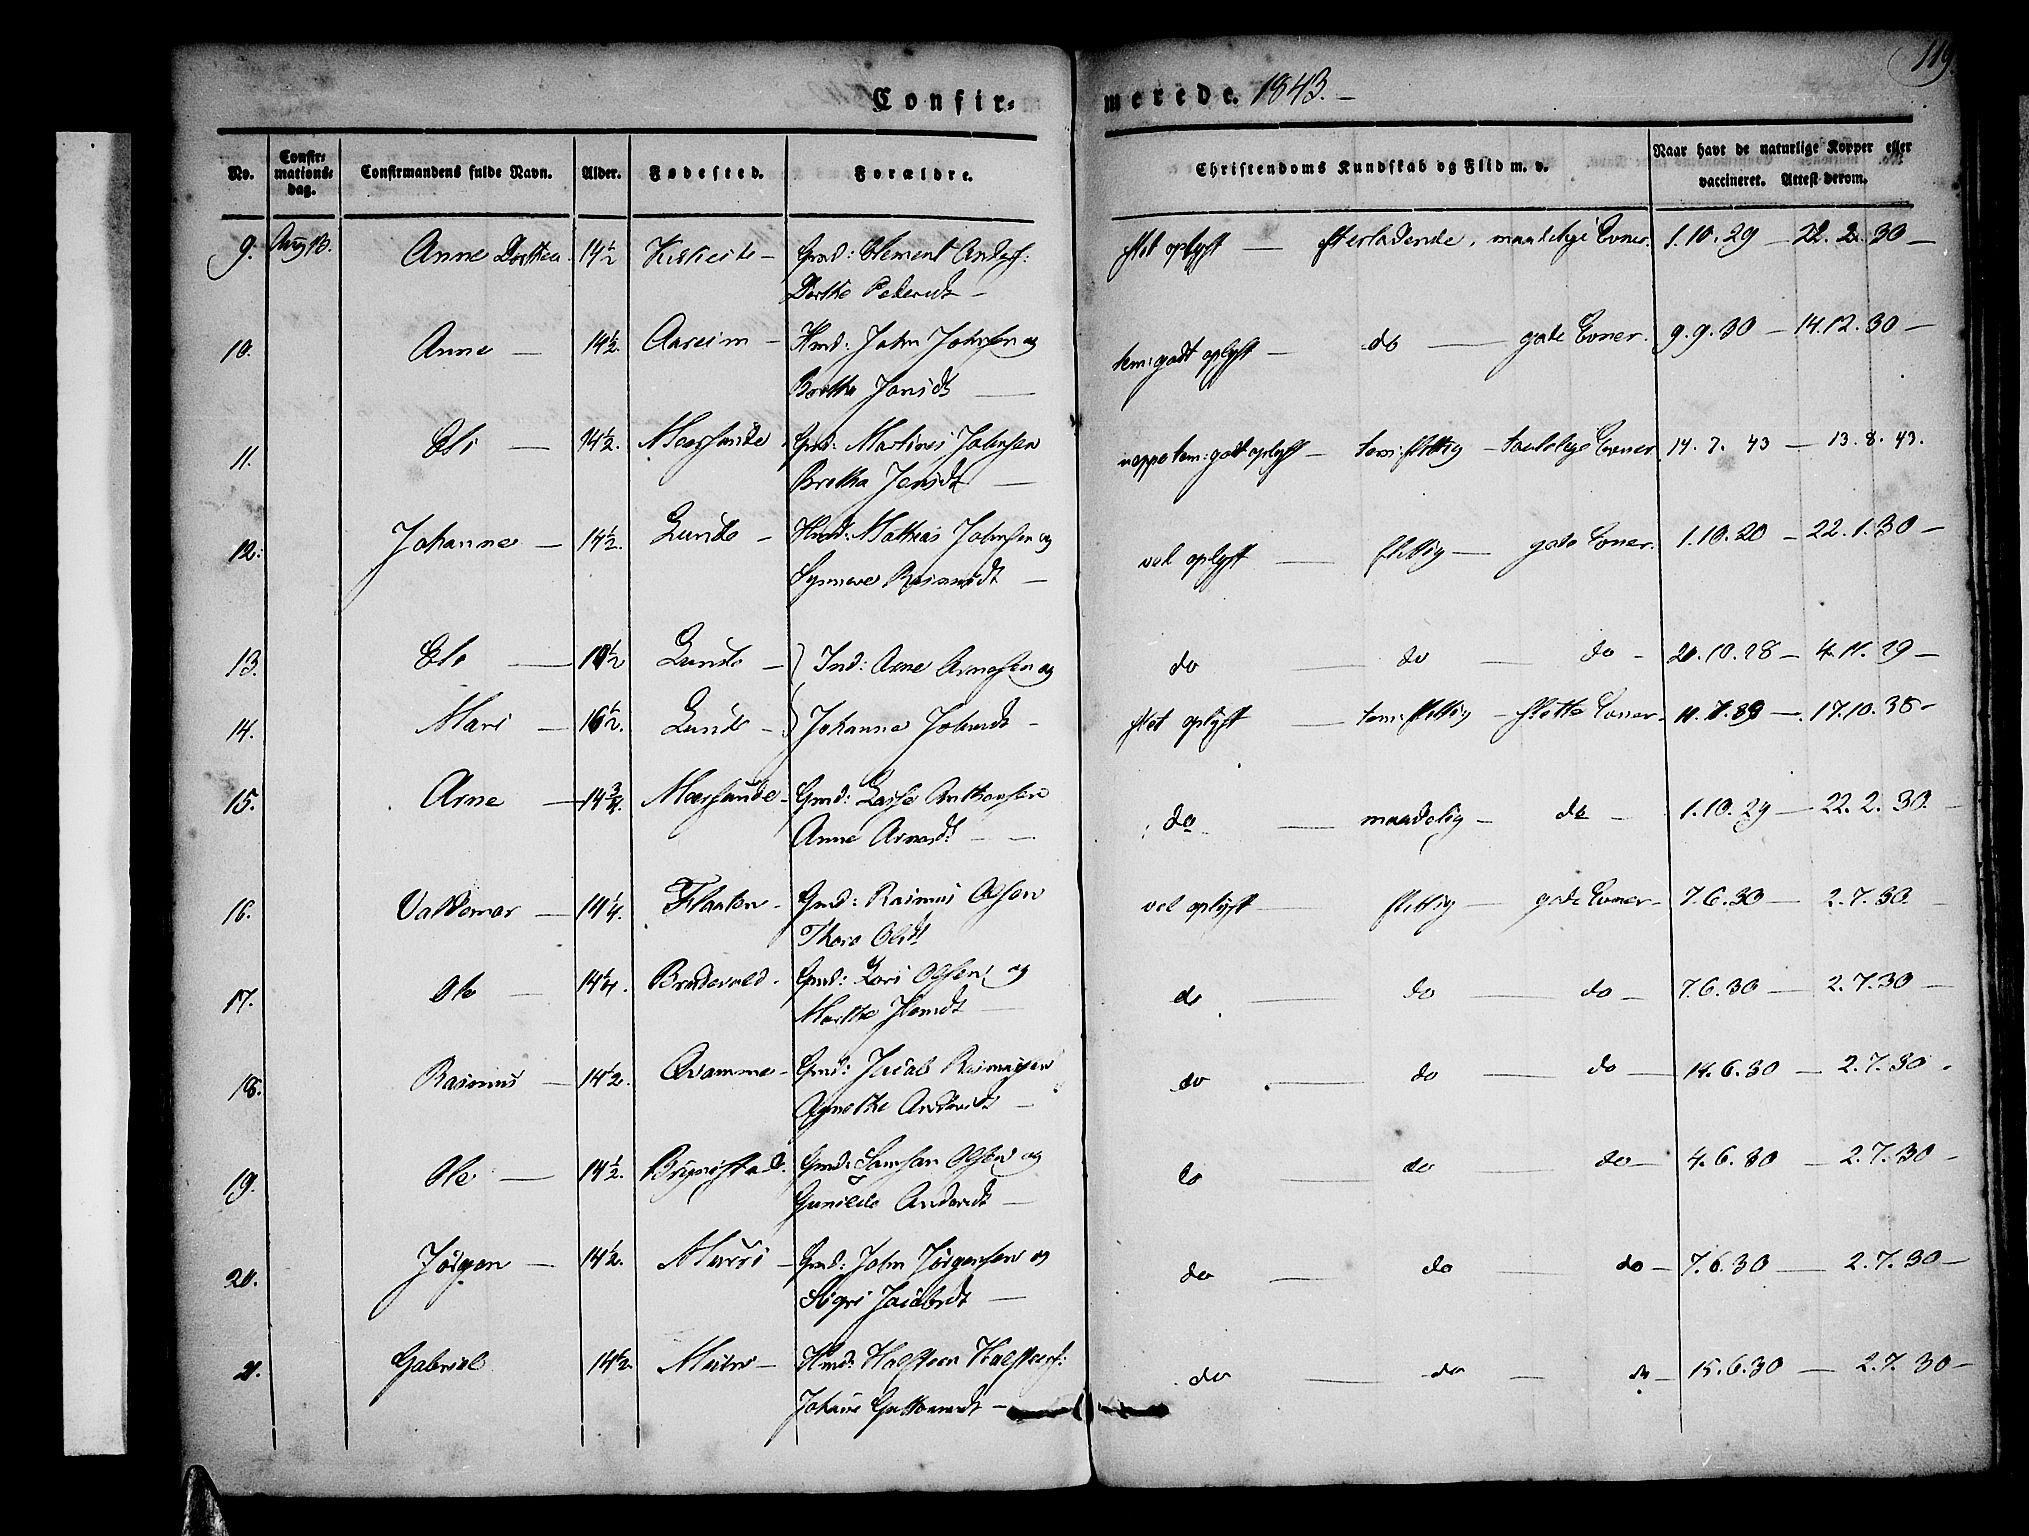 119.
Confir= merede. 1843. –
No. Confirmationsdag. Confirmandens fulde Navn. Alder. Fødested. Forældre. Christendoms Kundskab og Flid m. v. Naar havt de naturlige Kopper eller vaccineret. Attest derom.
9. Aug 13. Anne Dorthea 14 1/2 – Gmd: Clement Anders: slet oplyst — efterladende, maadelige Evner. 1.10.29 – 22.2.30 –
Dorthe Pedersdt –
10. Anne – 14 1/2. Aareim – Hmd: John Johnsen og tem: godt oplyst – do — gode Evner. 9.9.30 – 14.12.30 –
Brithe Jonsdt —
11. Eli – 14 1/2. Moersunde Gmd: Martines Johnsen neppe tem: godt oplyst – tem: flittig – taalelige Evner 14.7.43 – 13.8.43.
Brithe Jensdt —
12. Johanne – 14 1/2. Lunde – Hmd: Mathias Johnsen og vel oplyst — flittig — gode Evner. 1.10.20 – 22.1.30 –
Synneve Rasmusdt —
13. Eli — Lunde – Ind: Arne Arnesen og do — do — do – 20.10.28 – 4.11.29 –
14. Mari – 16 1/2. Lunde – Johanne Johnsdt – slet oplyst — tem: flittig – slette Evner – 17.10.38 –
15. Arne – 14 3/4. Moersunde – Gmd: Lasse Anthonsen do — maadelig – do – 1.10.29 – 22.2.30 –
Anne Arnesdt –
16. Valdemar – 14 1/4. Flaaten – Gmd: Rasmus Olsen vel oplyst — flittig – gode Evner – 7.6.30 – 2.7.30 –
Thore Olsdt
17. Ole – 14 1/4. Bredeveld – Gmd: Lars Olsen og do — do — do – 7.6.30 – 2.7.30 –
Marthe
18. Rasmus – 14 1/2. Qvamme – Gmd: Jacob Rasmusen do — do — do – 14.6.30 – 2.7.30 –
Agnethe Andersdt –
19. Ole – 14 1/2. Brynestad. Gmd: Samson Olsen og do — do — do – 4.6.30 – 2.7.30 –
Gunilde Andersdt –
20. Jørgen – 14 1/2. Murri – Gmd: John Jørgensen og do — do — do – 7.6.30 – 2.7.30 –
Sigri Jacobsdt –
21. Gabriel 14 1/2. – Hmd: Halsteen Halsteens: do — do – do – 15.6.30 – 2.7.30 –
Johanne Guttormsdt –